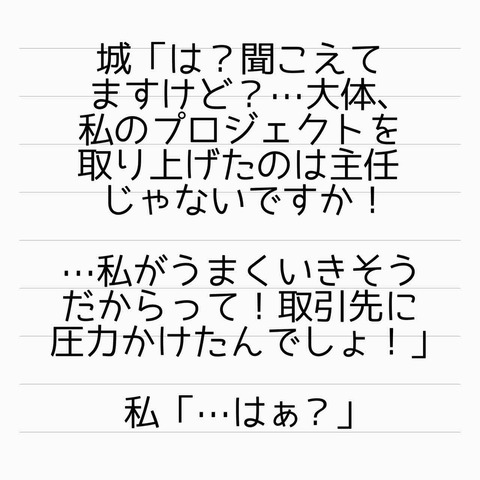 城「は？聞こえて
ますけど？…大体、
私のプロジェクトを
取り上げたのは主任
じゃないですか！
…私がうまくいきそう
だからって！取引先に
圧力かけたんでしょ！」
私「…はぁ？」